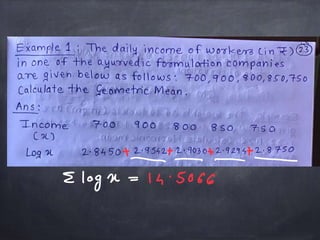 Example 1 : The daily income of workers (in ₹) 23
in one of the ayurvedic formulation companies
are given below as follows : 700, 900, 800, 850, 750
Calculate the Geometric Mean.
Ans :
Income 700 900 800 850 750
(x)
Log x 2.8450 + 2.9542 + 2.9030 + 2.9294 + 2.8750
Σ log x = 14.5066